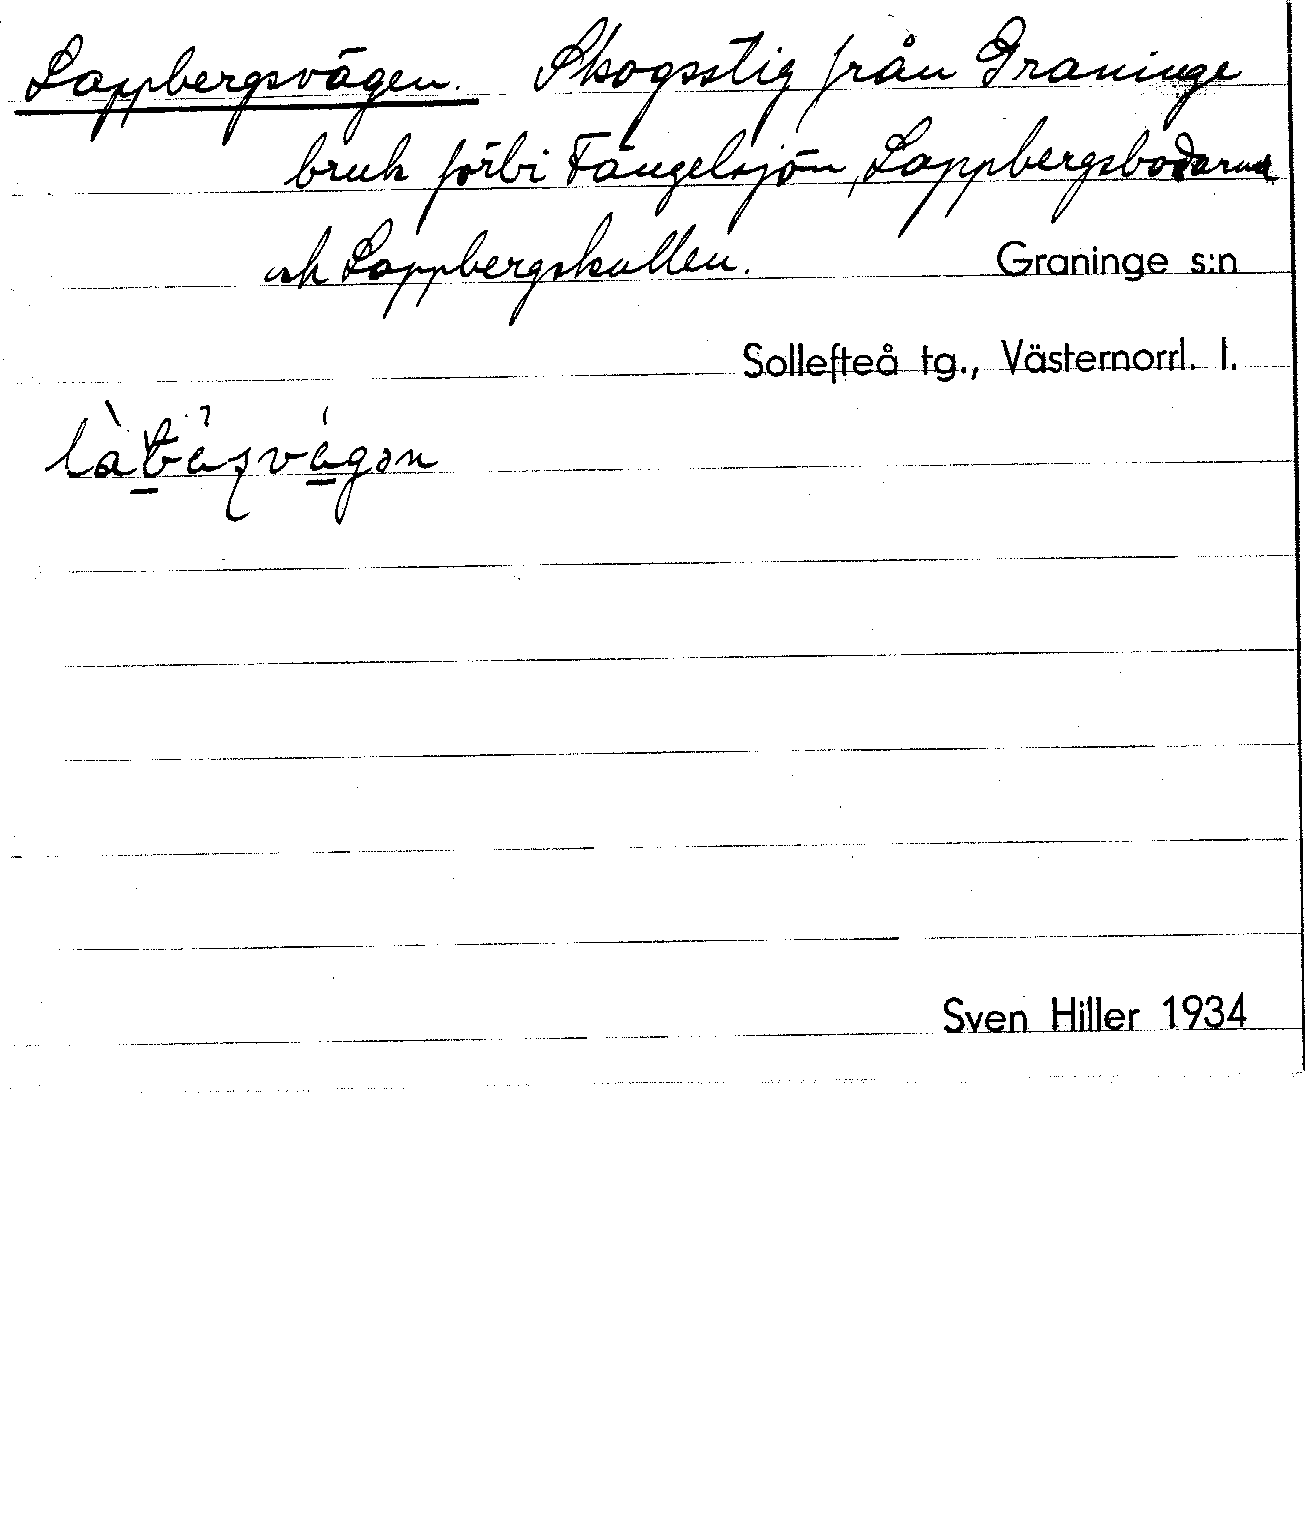 Lappbergsvägen. Skogsstig från Graninge
bruk förbi Fängelsjön, Lappbergsbodarna
och Lappbergskullen.
Graninge s:n
Sollefteå tg., Västernorrl. l.
Sven Hiller 1934